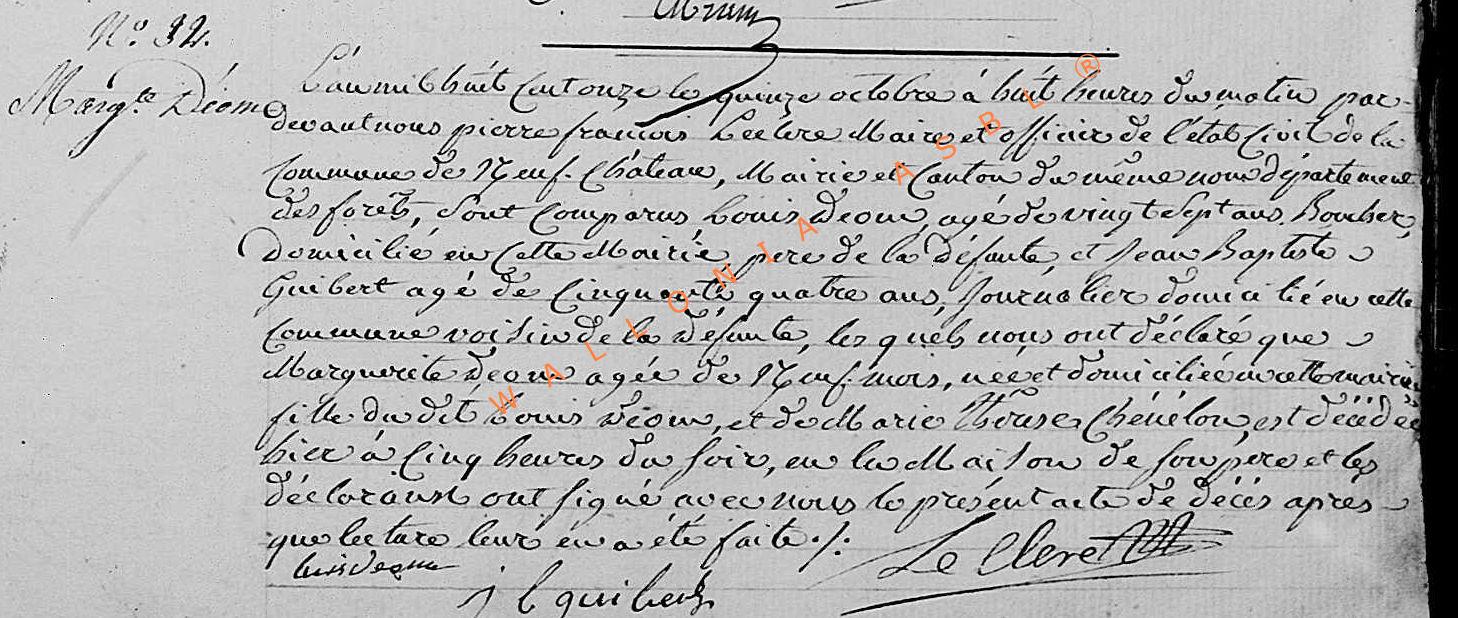 N.o 32.
Marg.te Déom
L'an mil huit cent onze le quinze octobre à huit heures du matin par-
devant nous pierre francois Leclere Maire et officier de l'état Civil de la
Commune de Neuf-Château, Mairie et Canton du même nom département
des forêts, sont comparus Louis Deom, agé de vingt sept ans, Boucher,
domicilié en cette Mairie, pere de la défunte, et Jean Baptiste
Guibert agé de Cinquante quatre ans, Journalier domicilié en cette
Commune voisin de la défunte, les quels nous ont déclaré que
Marguerite Deom agée de Neuf mois, née et domiciliée en cette mairie
fille du dit Louis Déom, et de Marie Thérese Chénélou, est décédée
hier à Cinq heures du soir, en la Maison de son pere et les
déclarans ont signé avec nous le présent acte de décés après
que lecture leur en a été faite ./.
louis deom
Le Clere
j b guibert
WALLONIA ASBL ®